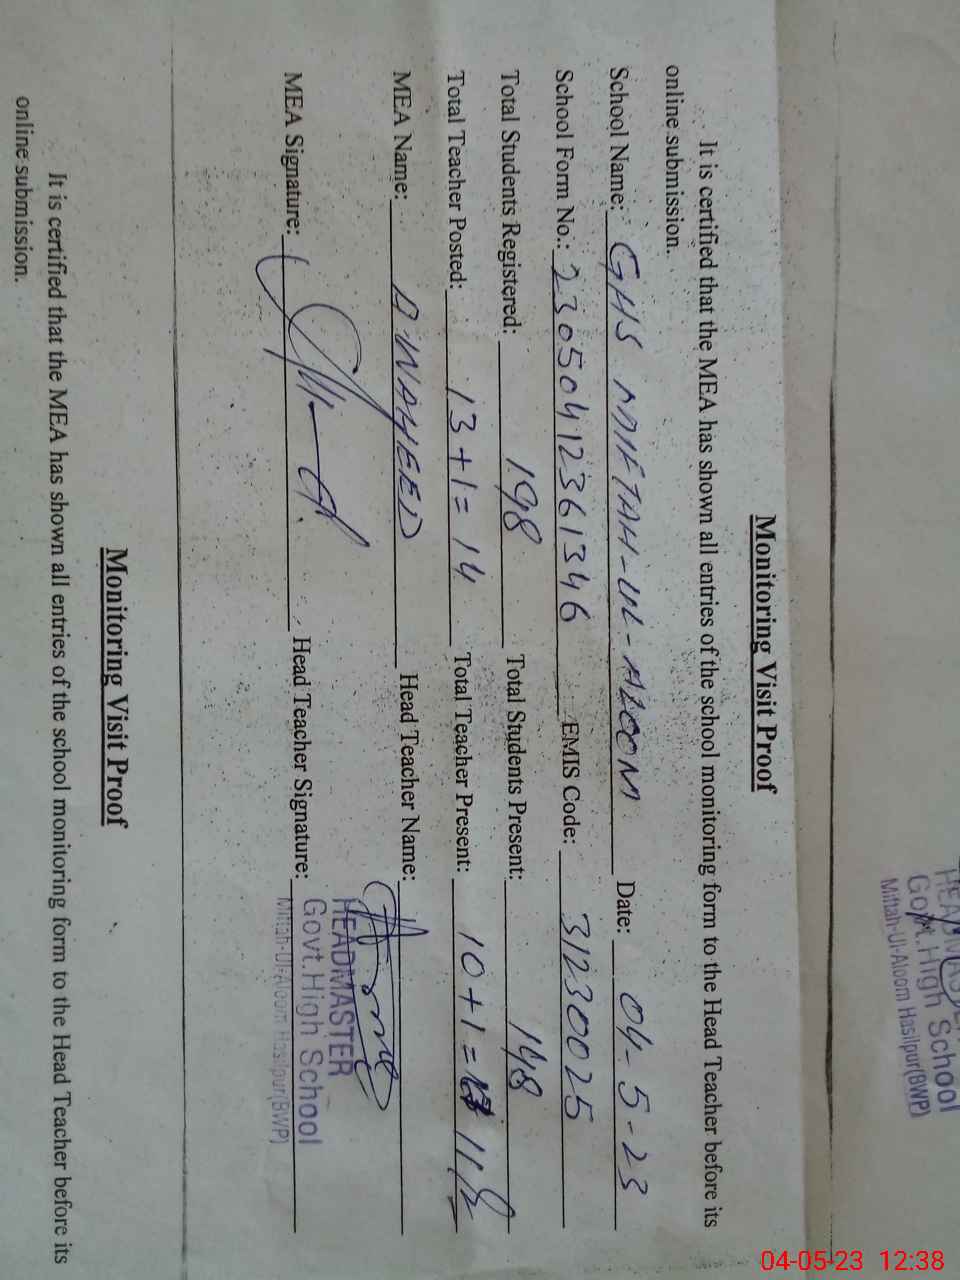 HEADMASTER
Govt. High School
Miftah-Ul-Aloom Hasilpur(BWP)
Monitoring Visit Proof
It is certified that the MEA has shown all entries of the school monitoring form to the Head Teacher before its
online submission.
School Name: GHS MIFTAH-UL-ALOOM Date: 04-5-23
School Form No.: 23050412361346 EMIS Code: 31230025
Total Students Registered: 198 Total Students Present: 148
Total Teacher Posted: 13+1=14 Total Teacher Present: 10+1= 11
MEA Name: A WAHEED Head Teacher Name:
MEA Signature: Head Teacher Signature:
HEADMASTER
Govt. High School
Miftah-Ul-Aloom Hasilpur(BWP)
Monitoring Visit Proof
It is certified that the MEA has shown all entries of the school monitoring form to the Head Teacher before its
online submission.
04-05-23 12:38